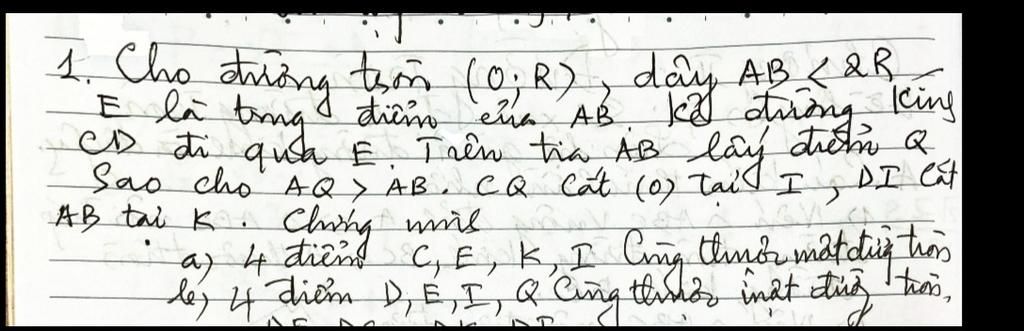 1. Cho đường tròn (O; R), dây AB < 2R
E là trung điểm của AB. Kẻ đường kính
CD đi qua E. Trên tia AB lấy điểm Q
Sao cho AQ > AB. CQ cắt (O) tại I, DI cắt
AB tại K. Chứng minh
a) 4 điểm C, E, K, I Cùng thuộc một đường tròn
b) 4 điểm D, E, I, Q Cùng thuộc một đường tròn.